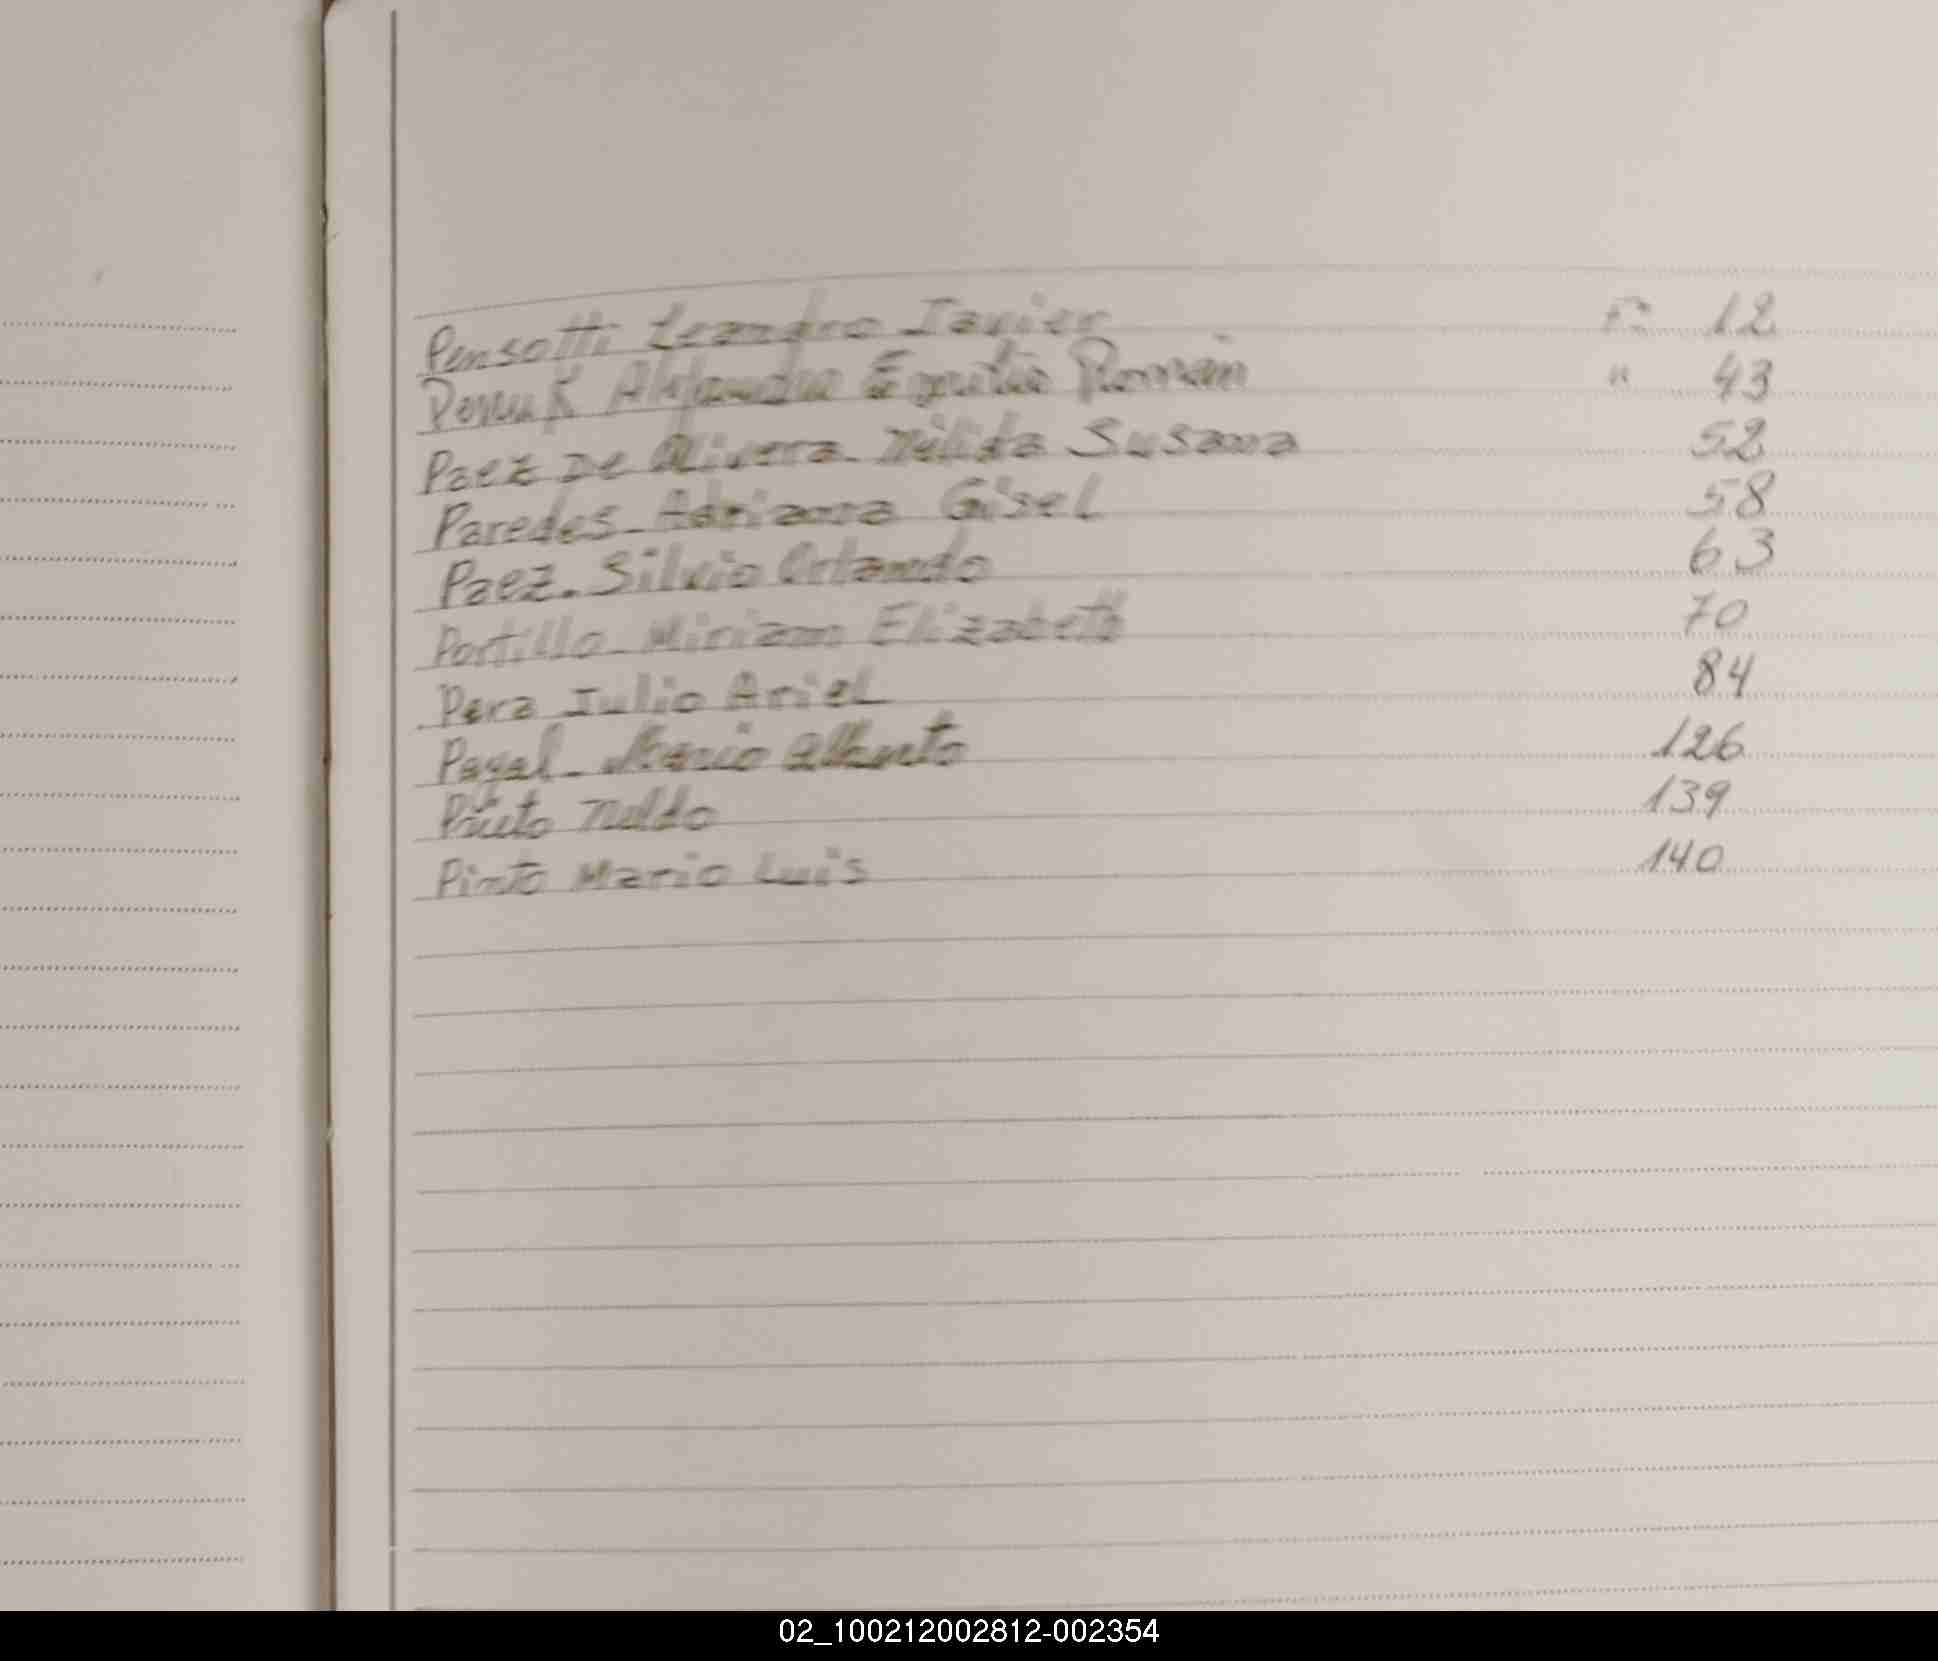 Pensotti Leandro Javier F: 12
Alejandra Román " 43
Paez De Olivera Nélida Susana 52
Paredes Adriana Gisel 58
Paez. Silvio Orlando 63
Portillo Miriam Elizabeth 70
Pera Julio Ariel 84
Mario Alberto 126
Neldo 139
Pinto Mario Luis 140
02_100212002812-002354